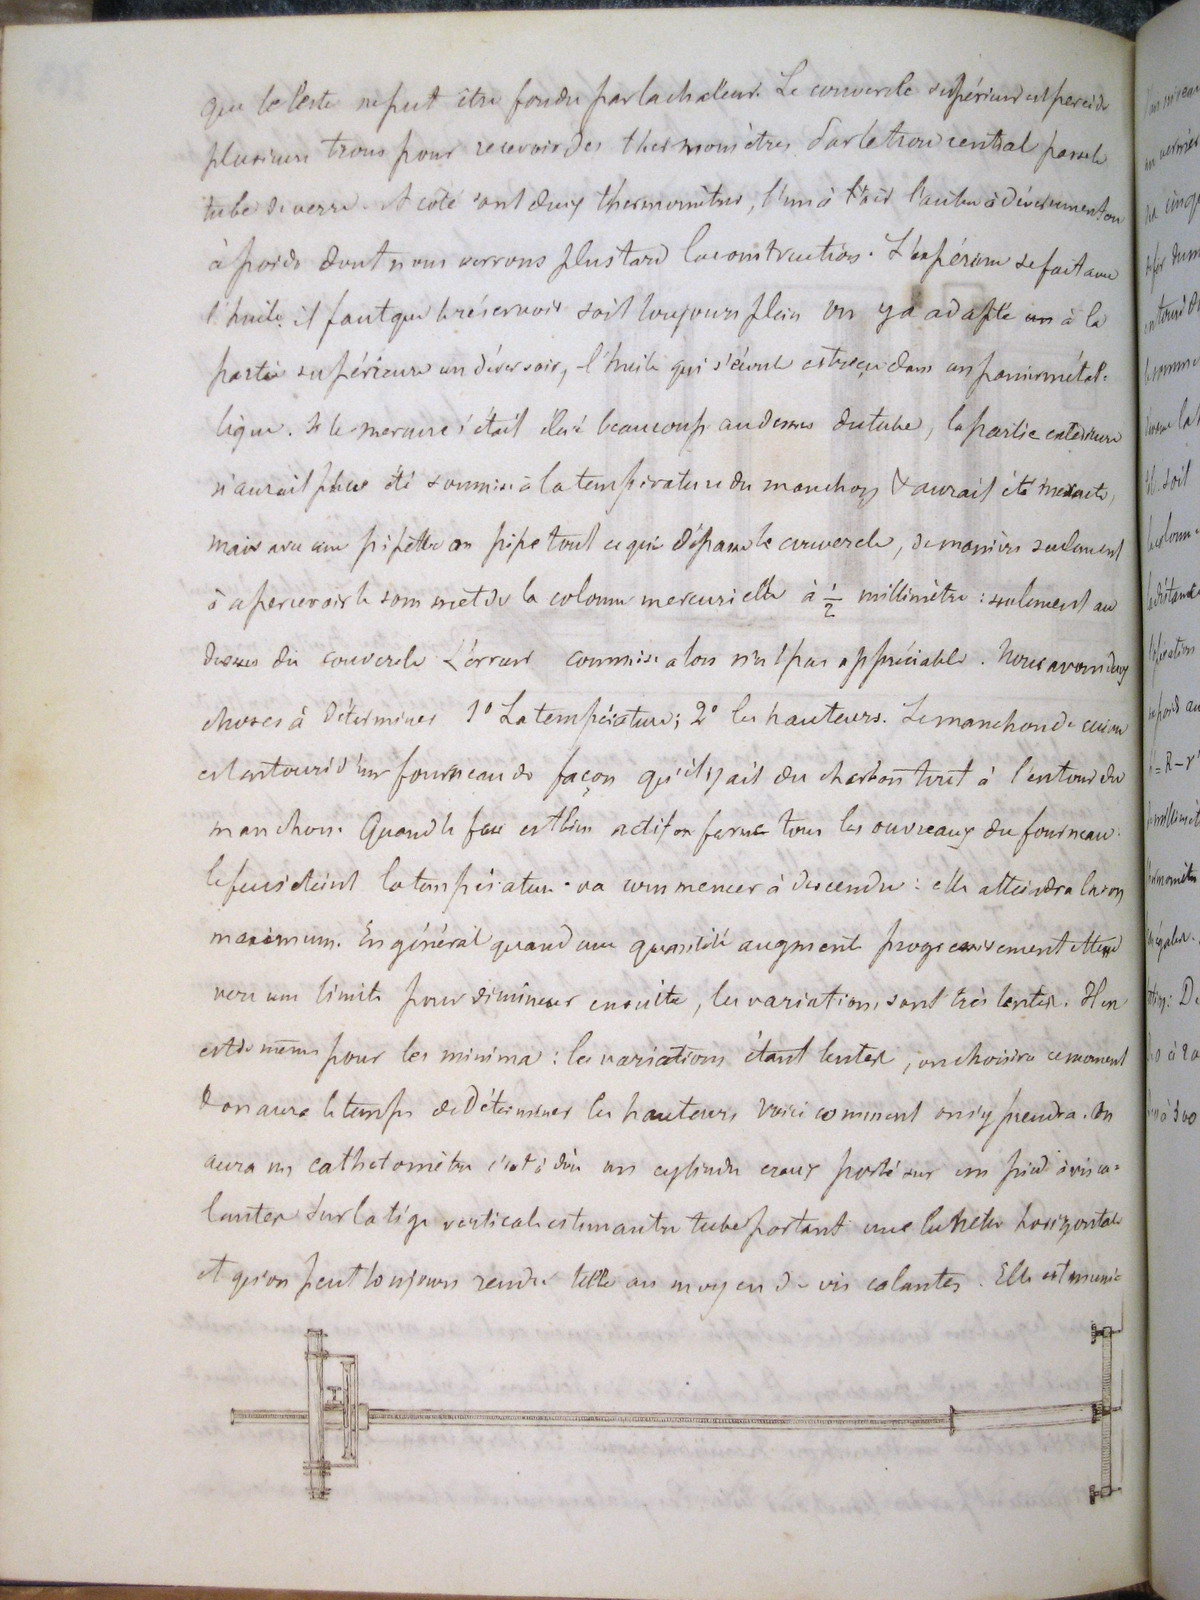 que le reste ne put être fondu par la chaleur. Le couvercle supérieur est percé de
plusieurs trous pour recevoir des thermomètres Par le trou central passe le
tube de verre. A côté sont deux thermomètres, l'un à l'air l'autre à déversement ou
à poids dont nous verrons plus tard la construction. L'expérience se fait avec
l'huile. il faut que le réservoir soit toujours plein on y a adapté à la
partie supérieure un déversoir, l'huile qui s'écoule est reçue dans un panier métal-
lique. Si le mercure s'était élevé beaucoup au dessus du tube, la partie extérieure
n'aurait plus été soumise à la température du manchon & aurait été inexacte,
mais avec une pipette on pipe tout ce qui dépasse le couvercle, de manière seulement
à apercevoir le sommet de la colonne mercurielle à 1/2 millimètre : seulement au
dessus du couvercle L'erreur commise alors n'est pas appréciable. Nous avons deux
choses à déterminer 1° La température; 2° les hauteurs. Le manchon de cuivre
est entouré d'un fourneau de façon qu'il y ait du charbon tout à l'entour du
manchon. Quand le feu est bien actif on ferme tous les ouvreaux du fourneau.
le feu s'éteint la température va commencer à descendre : elle atteindra là son
maximum. En général quand une quantité augmente progressivement et tend
vers une limite pour diminuer ensuite, les variations sont très lentes. Il en
est de même pour les minima : les variations étant lentes, on choisira ce moment
& on aura le temps de déterminer les hauteurs Voici comment on s'y prendra. On
aura un cathétomètre c'est à dire un cylindre creux porté sur un pied à vis ca-
lantes Sur la tige verticale est un autre tube portant une lunette horizontale
et qu'on peut toujours rendre telle au moyen de vis calantes. Elle est munie